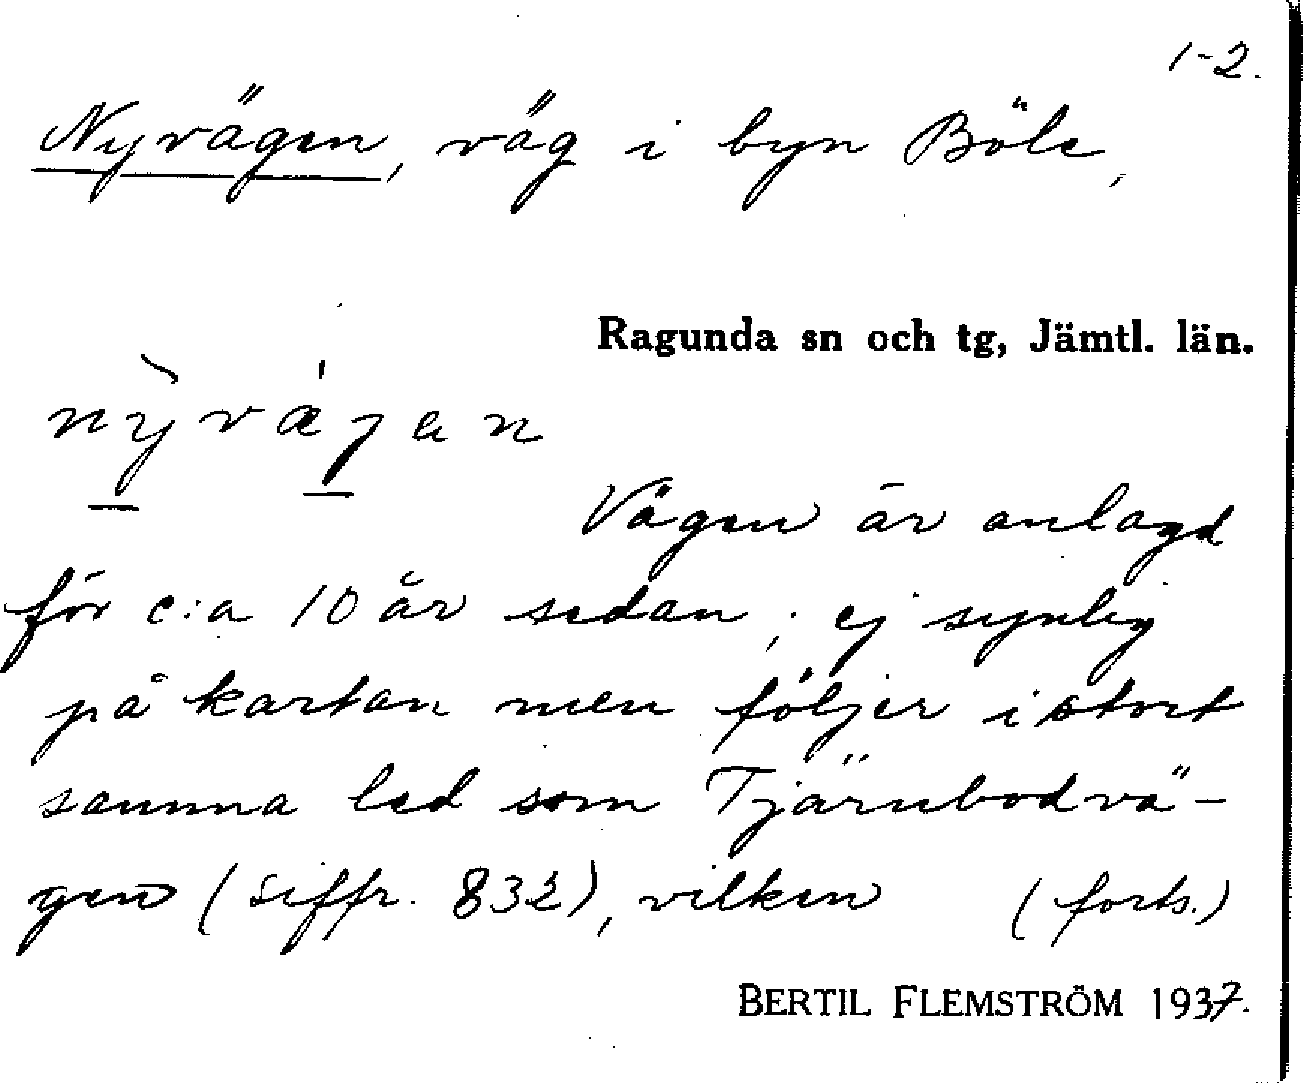 1-2.
Nyvägen, väg i byn Böle,
Ragunda sn och tg, Jämtl. län.
nỳvájan
Vägen är anlagd
för c:a 10 år sedan; ej synlig
på kartan men följer i stort
samma led som Tjärnbodvä-
gen (siffr. 832), vilken (forts.)
BERTIL FLEMSTRÖM 1937.